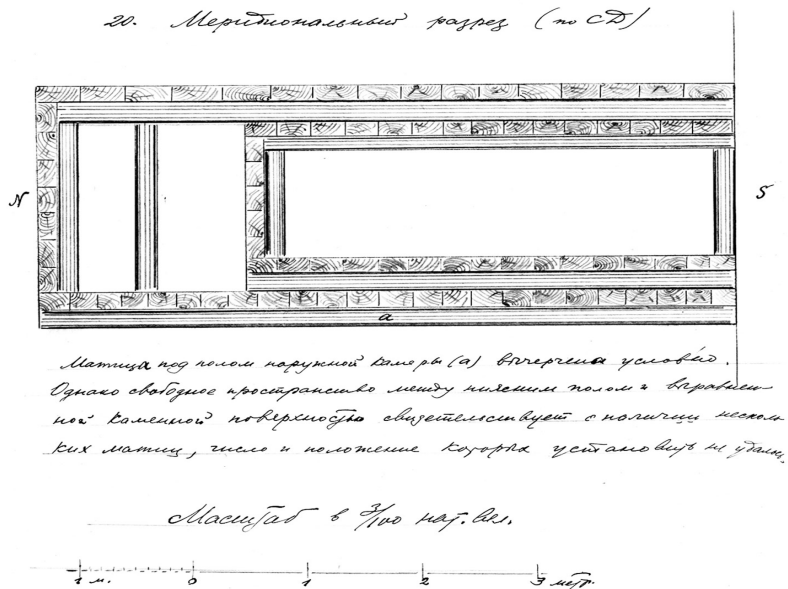 20. Меридиональный разрез (по СД)
N
S
а
Матица под полом наружной камеры (а) вычерчена условно.
Однако свободное пространство между нижним полом и выравнен-
ной каменной поверхностью свидетельствует о наличии несколь-
ких матиц, число и положение которых установить не удалось.
Масштаб в 3/100 нат. вел.
1 м. 0 1 2 3 метр.